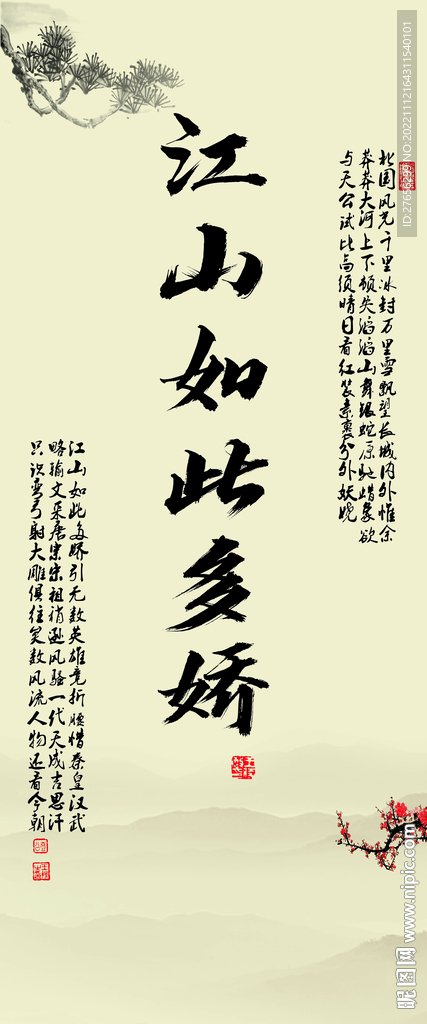 江山如此多娇
北国风光千里冰封万里雪飘望长城内外惟余
莽莽大河上下顿失滔滔山舞银蛇原驰蜡象欲
与天公试比高须晴日看红装素裹分外妖娆
江山如此多娇引无数英雄竞折腰惜秦皇汉武
略输文采唐宗宋祖稍逊风骚一代天成吉思汗
只识弯弓射大雕俱往矣数风流人物还看今朝
NO:20221112164311540101
昵图网 www.nipic.com